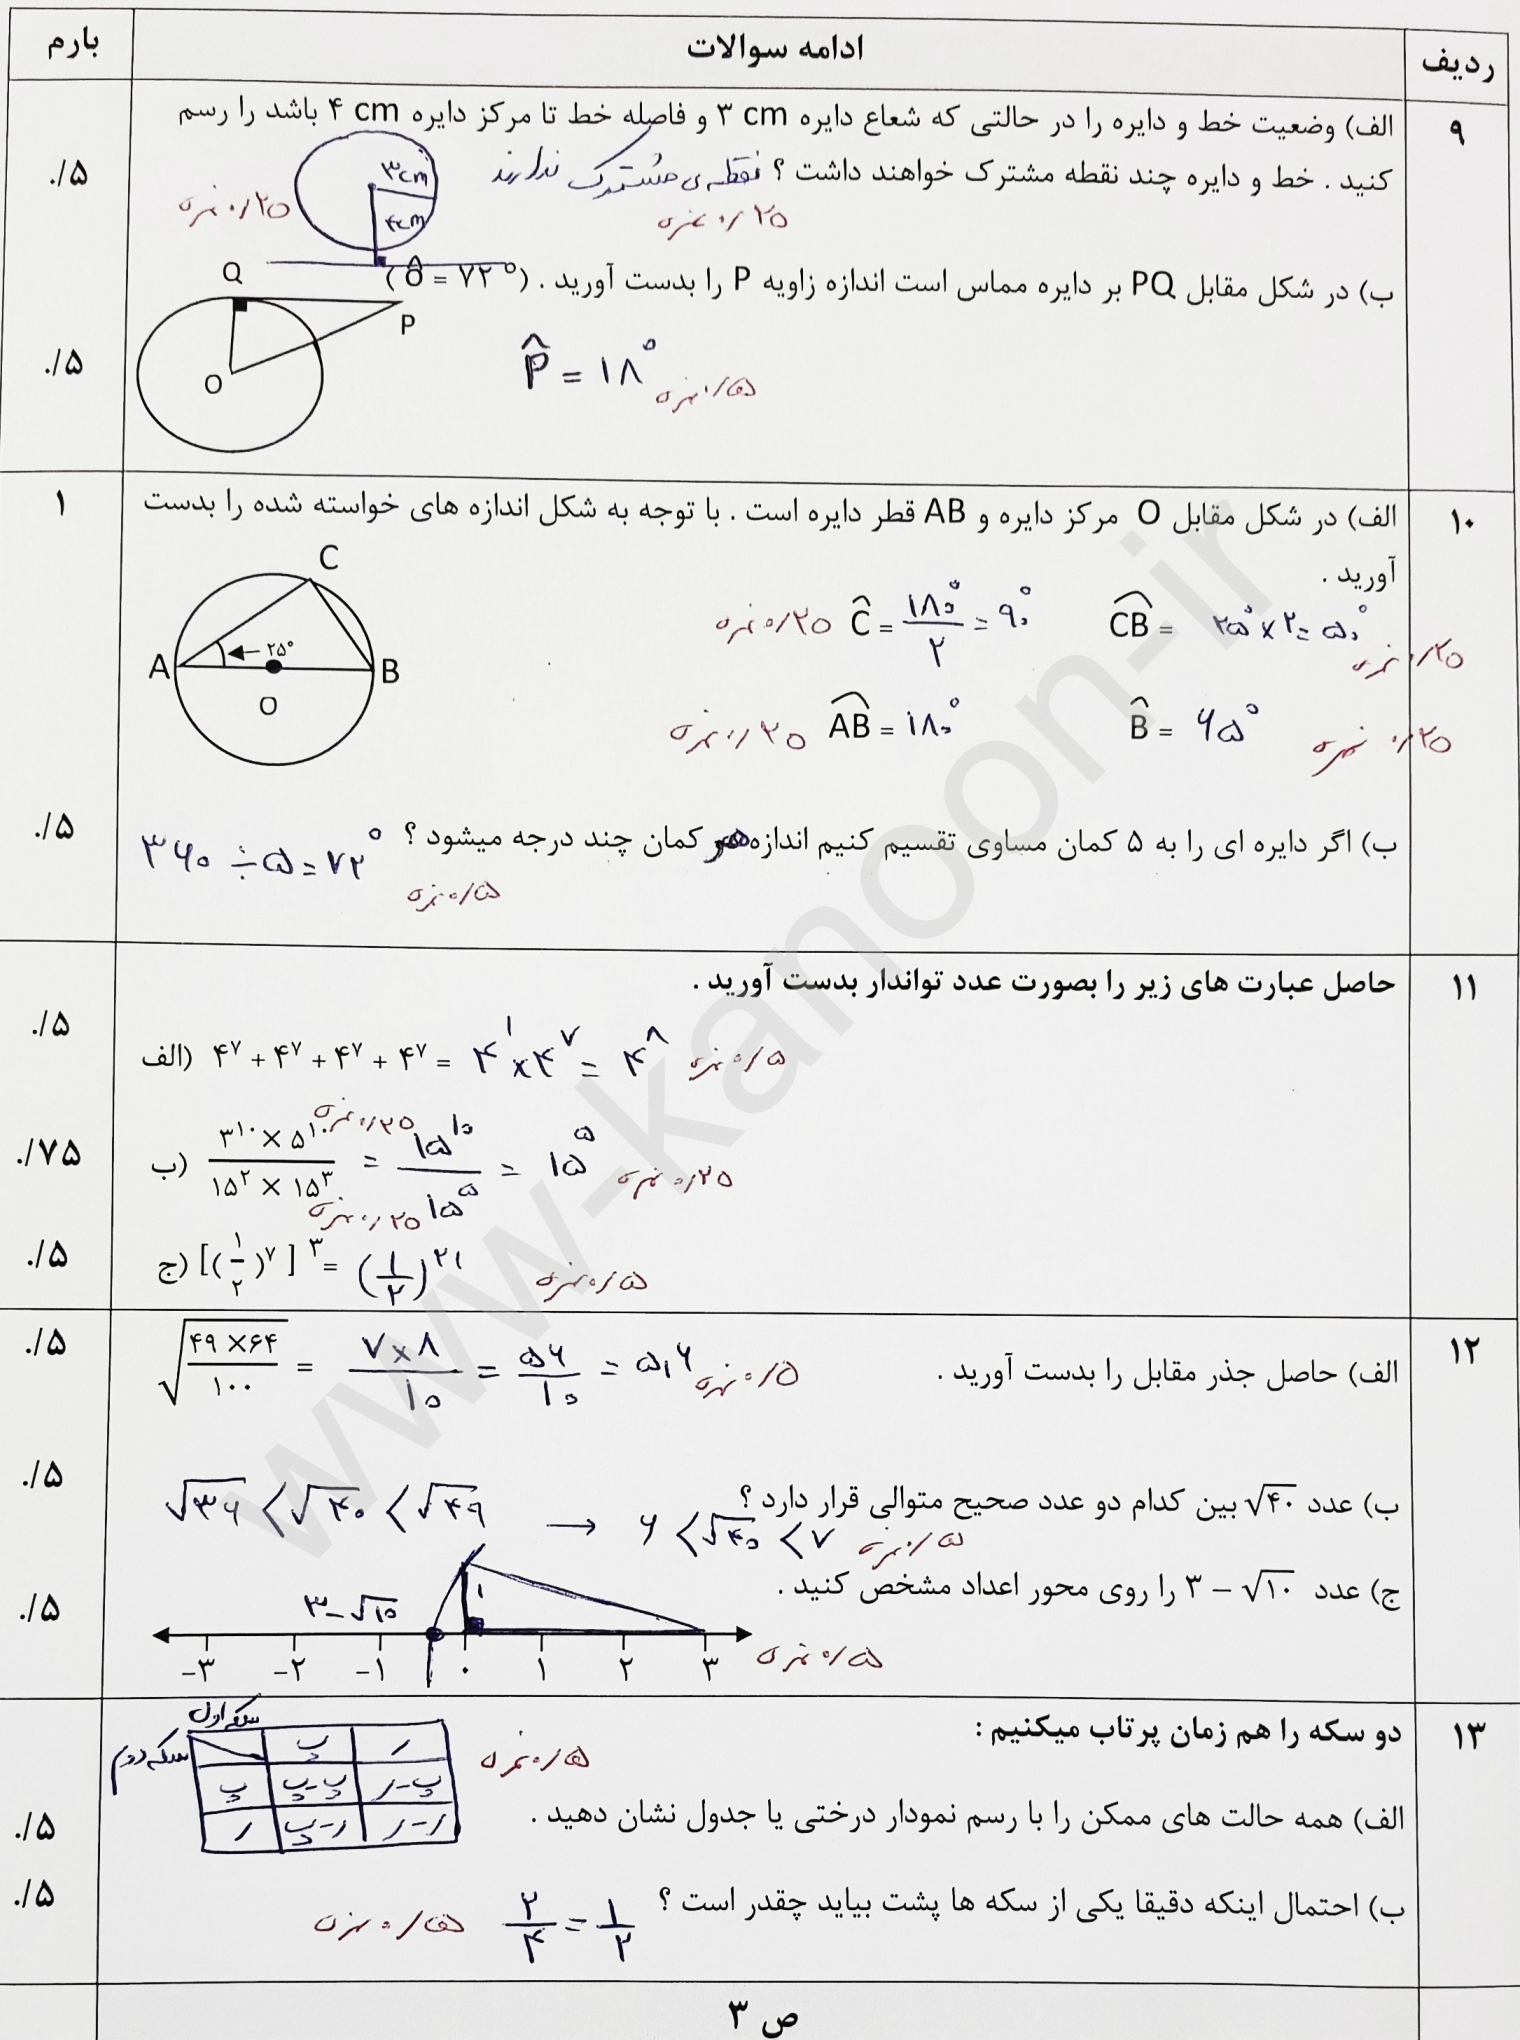 ردیف
ادامه سوالات
بارم
۹
الف) وضعیت خط و دایره را در حالتی که شعاع دایره ۳ cm و فاصله خط تا مرکز دایره ۴ cm باشد را رسم
کنید . خط و دایره چند نقطه مشترک خواهند داشت ؟ نقطه‌ی مشترک ندارند
./۵
۳cm
۴cm
۰/۲۵ نمره
۰/۲۵ نمره
ب) در شکل مقابل PQ بر دایره مماس است اندازه زاویه P را بدست آورید . (Ô = ۷۲°)
Q
P
O
P̂ = ۱۸° ۰/۵ نمره
./۵
۱۰
الف) در شکل مقابل O مرکز دایره و AB قطر دایره است . با توجه به شکل اندازه های خواسته شده را بدست
آورید .
۱
C
A
۲۵°
B
O
Ĉ = ۱۸۰°/۲ = ۹۰° ۰/۲۵ نمره
C͡B = ۲۵° × ۲ = ۵۰° ۰/۲۵ نمره
A͡B = ۱۸۰° ۰/۲۵ نمره
B̂ = ۶۵° ۰/۲۵ نمره
ب) اگر دایره ای را به ۵ کمان مساوی تقسیم کنیم اندازه هر کمان چند درجه میشود ؟ ۳۶۰ ÷ ۵ = ۷۲°
۰/۵ نمره
./۵
۱۱
حاصل عبارت های زیر را بصورت عدد تواندار بدست آورید .
الف) ۴⁷ + ۴⁷ + ۴⁷ + ۴⁷ = ۴¹ × ۴⁷ = ۴⁸ ۰/۵ نمره
./۵
ب) (۳¹⁰ × ۵¹⁰)/(۱۵² × ۱۵³) = ۱۵¹⁰/۱۵⁵ = ۱۵⁵ ۰/۲۵ نمره
۰/۲۵ نمره
۰/۲۵ نمره
./۷۵
ج) [(۱/۲)⁷]³ = (۱/۲)²¹ ۰/۵ نمره
./۵
۱۲
الف) حاصل جذر مقابل را بدست آورید .
√(۴۹ × ۶۴/۱۰۰) = ۷ × ۸/۱۰ = ۵۶/۱۰ = ۵,۶ ۰/۵ نمره
./۵
ب) عدد √۴۰ بین کدام دو عدد صحیح متوالی قرار دارد ؟
√۳۶ < √۴۰ < √۴۹ → ۶ < √۴۰ < ۷ ۰/۵ نمره
./۵
ج) عدد ۳ − √۱۰ را روی محور اعداد مشخص کنید .
۳ − √۱۰
۱
−۳ −۲ −۱ ۰ ۱ ۲ ۳
۰/۵ نمره
./۵
۱۳
دو سکه را هم زمان پرتاب میکنیم :
سکه اول
سکه دوم
پ ر
پ پ-پ پ-ر
ر ر-پ ر-ر
۰/۵ نمره
الف) همه حالت های ممکن را با رسم نمودار درختی یا جدول نشان دهید .
./۵
ب) احتمال اینکه دقیقا یکی از سکه ها پشت بیاید چقدر است ؟ ۲/۴ = ۱/۲ ۰/۵ نمره
./۵
ص ۳
www-kanoon-ir